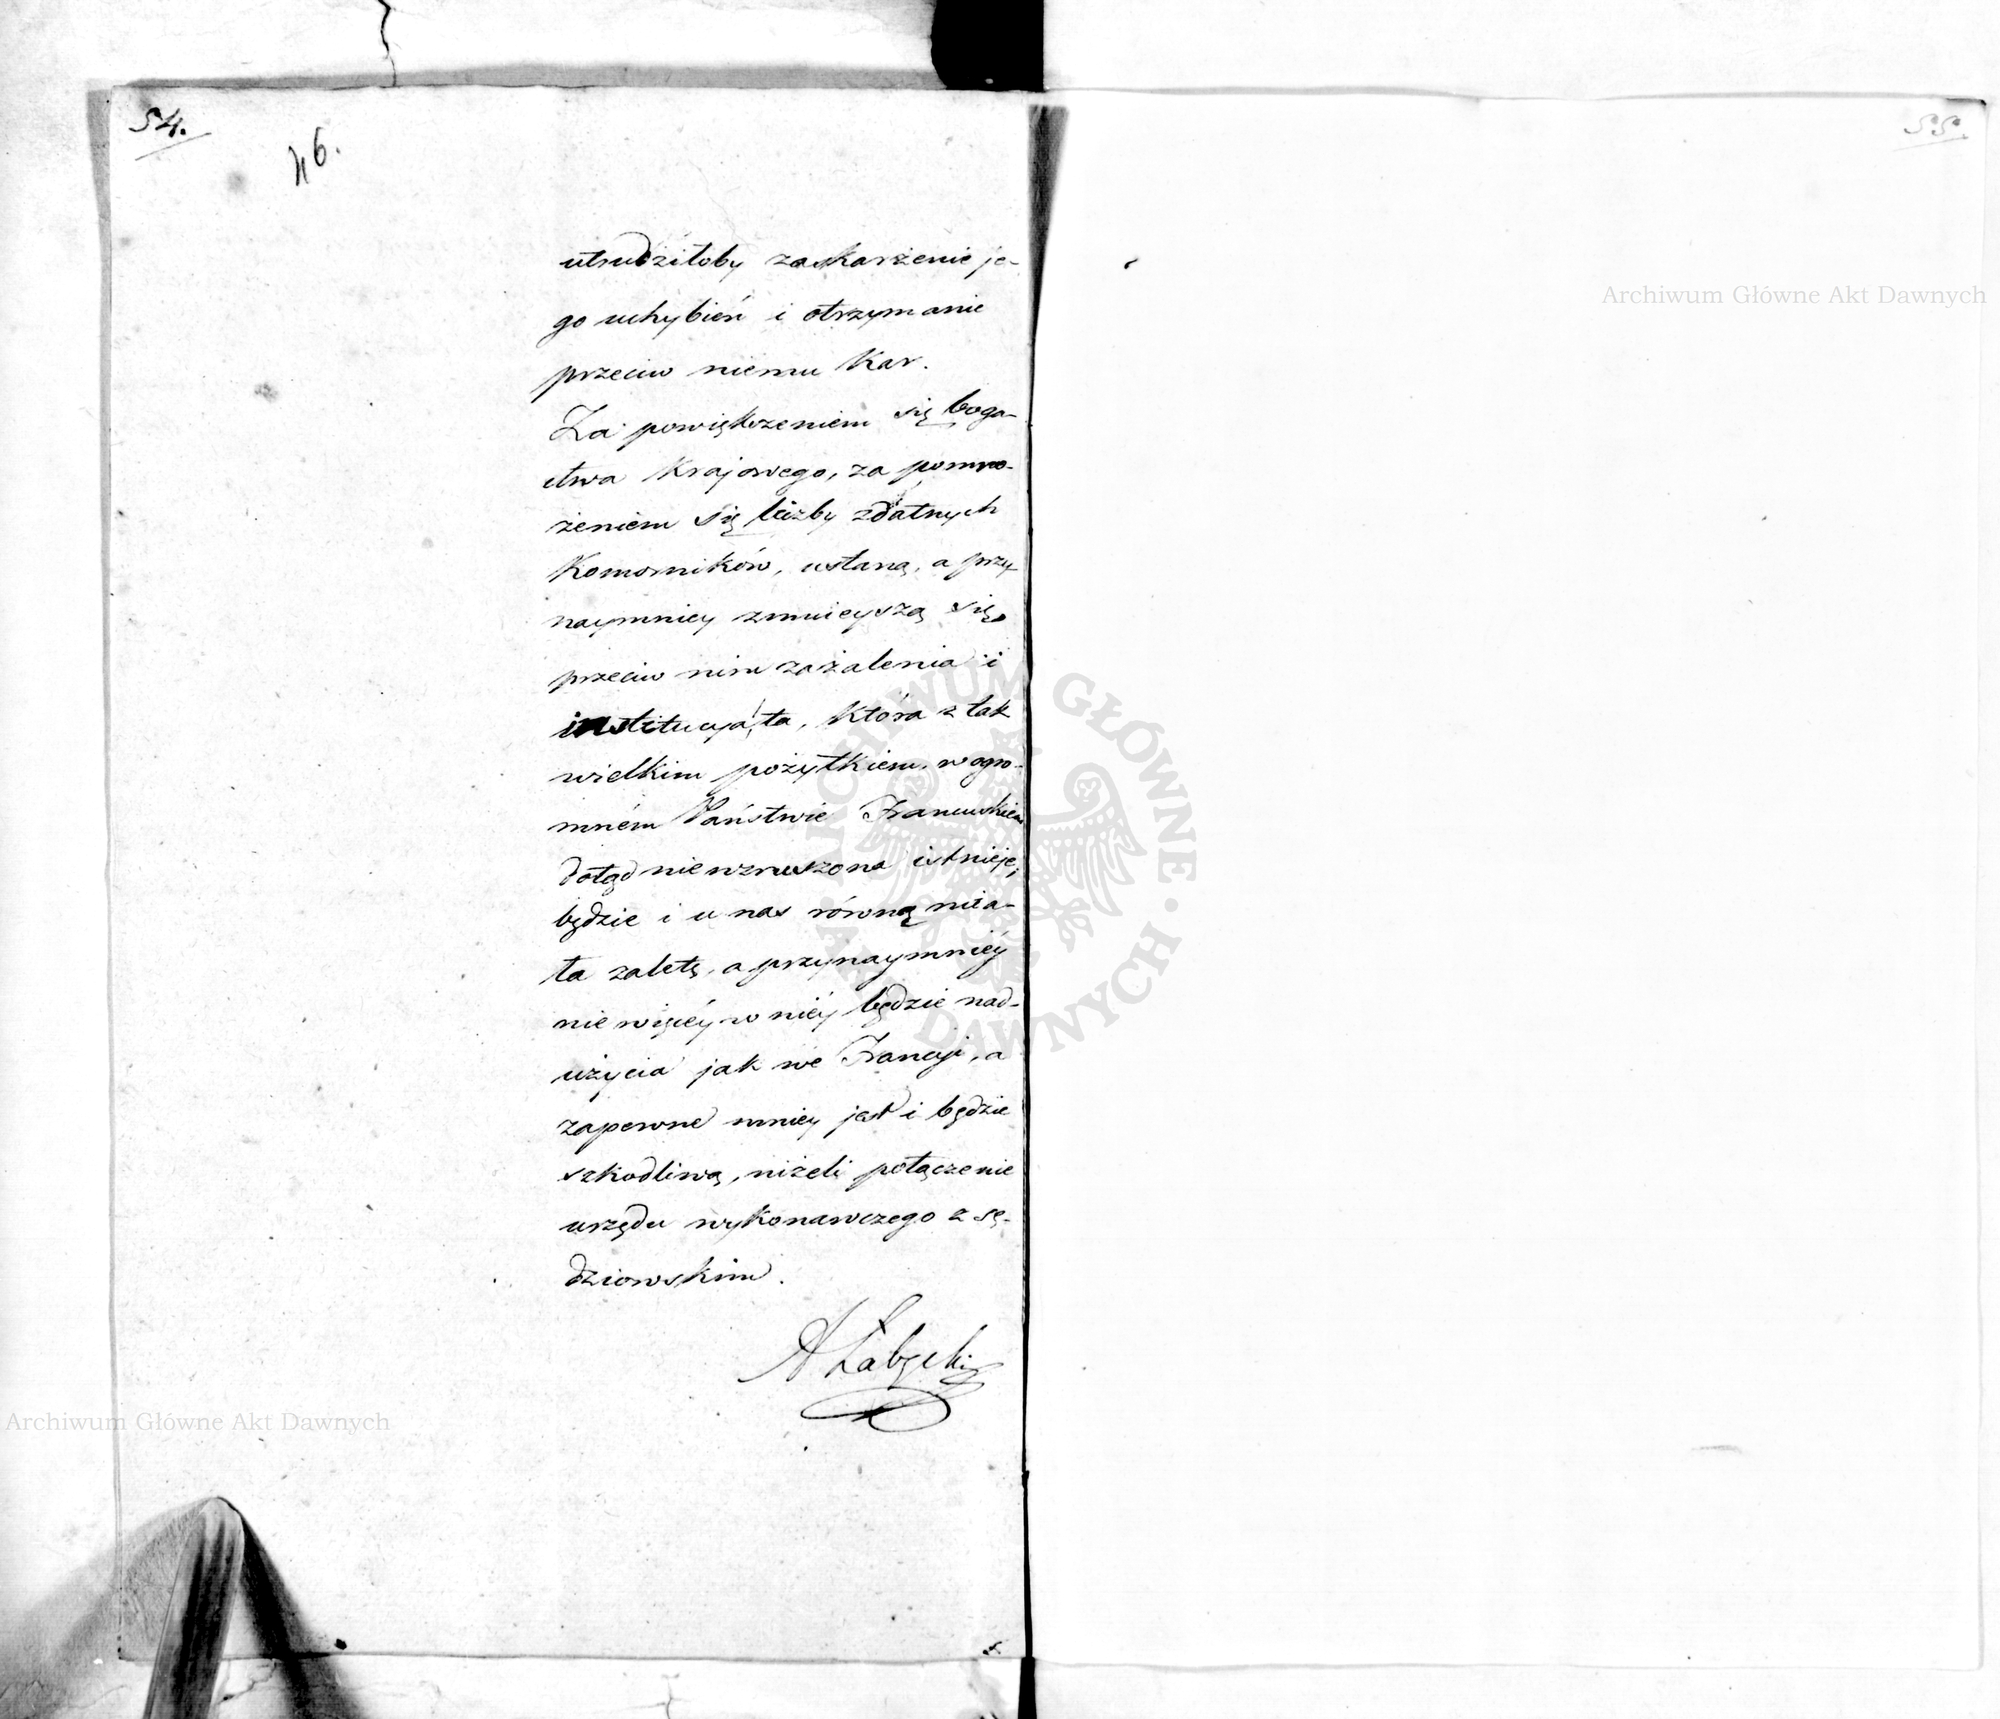 54.
46.
utrudziłoby zaskarżenie je-
go uchybień i otrzymanie
przeciw niemu Kar.
Za powiększeniem się boga-
ctwa Krajowego, za pomno-
żeniem się liczby zdatnych
Komorników, ustaną, a przy
naymniey zmnieyszą się
przeciw nim zażalenia i
instytucyja ta, która z tak
wielkim pożytkiem, w ogro-
mném Państwie Francuskiem
dotąd niewzruszona istnieje,
będzie i u nas równą mia-
ła zaletę, a przynaymniéy
nie więcéy w niéy będzie nad-
użycia jak we Francyi, a
zapewne mniey jest i będzie
szkodliwą, niżeli połączenie
urzędu wykonawczego z sę-
dziowskim.
A Łabęcki
55.
Archiwum Główne Akt Dawnych
ARCHIWUM GŁÓWNE AKT DAWNYCH
Archiwum Główne Akt Dawnych